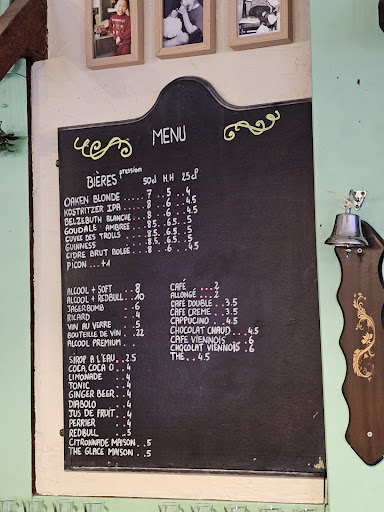 MENU
BIÈRES pression 50cl H.H 25cl
OAKEN BLONDE 7 5 4
KOSTRITZER IPA 8 6 4.5
BELZEBUTH BLANCHE 8 6 4.5
GOUDALE AMBREE 8.5 6.5 5
CUVEE DES TROLLS 8.5 6.5 5
GUINNESS 8.5 6.5 5
CIDRE BRUT BOLEE 8 6 4.5
PICON ...+1
ALCOOL + SOFT .. 8
ALCOOL + REDBULL .. 10
JAGERBOMB .. 6
RICARD .. 4
VIN AU VERRE .. 5
BOUTEILLE DE VIN .. 22
ALCOOL PREMIUM ..
SIROP A L'EAU .. 2.5
COCA, COCA O .. 4
LIMONADE .. 4
TONIC .. 4
GINGER BEER .. 4
DIABOLO .. 4
JUS DE FRUIT .. 4
PERRIER .. 4
REDBULL .. 5
CITRONNADE MAISON .. 5
THE GLACE MAISON .. 5
CAFÉ ... 2
ALLONGÉ ... 2
CAFÉ DOUBLE ... 3.5
CAFE CREME ... 3.5
CAPPUCINO ... 4.5
CHOCOLAT CHAUD ... 4.5
CAFE VIENNOIS .. 6
CHOCOLAT VIENNOIS . 6
THE ... 4.5